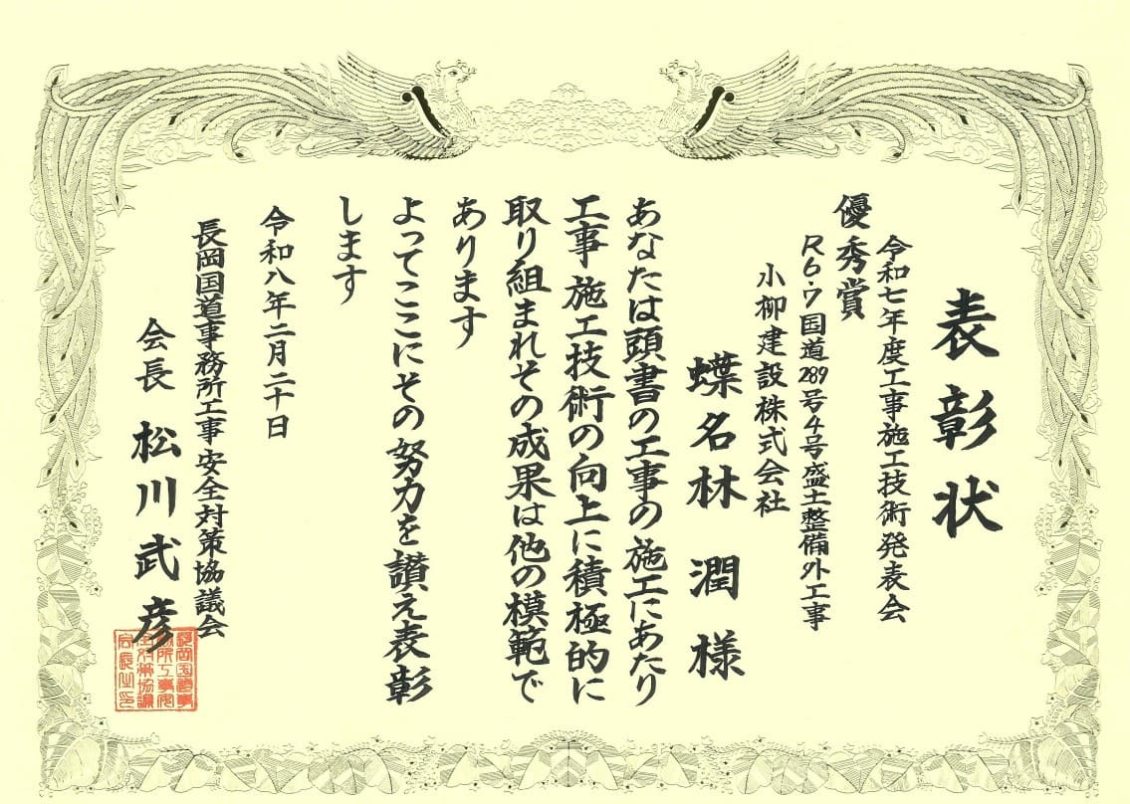 表彰状
令和七年度工事施工技術発表会
優秀賞
R6・7国道289号4号盛土整備外工事
小柳建設株式会社
蝶名林 潤 様
あなたは頭書の工事の施工にあたり
工事施工技術の向上に積極的に
取り組まれその成果は他の模範で
あります
よってここにその努力を讃え表彰
します
令和八年二月二十日
長岡国道事務所工事安全対策協議会
会長 松川武彦
長岡国道事
務所工事安
全対策協議
会長之印